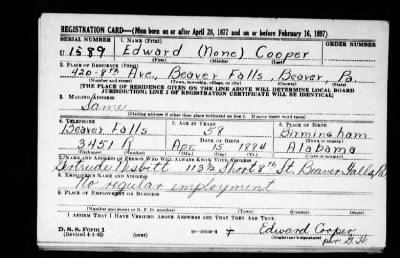 REGISTRATION CARD—(Men born on or after April 28, 1877 and on or before February 16, 1897)
SERIAL NUMBER 1. NAME (Print) ORDER NUMBER
U 1589 Edward (None) Cooper
(First) (Middle) (Last)
2. PLACE OF RESIDENCE (Print)
420-8th Ave., Beaver Falls, Beaver, Pa
(Number and street) (Town, township, village, or city) (County) (State)
[THE PLACE OF RESIDENCE GIVEN ON THE LINE ABOVE WILL DETERMINE LOCAL BOARD
JURISDICTION; LINE 2 OF REGISTRATION CERTIFICATE WILL BE IDENTICAL]
3. MAILING ADDRESS
Same
[Mailing address if other than place indicated on line 2. If same insert word same]
4. TELEPHONE 5. AGE IN YEARS 6. PLACE OF BIRTH
Beaver Falls 58 Birmingham
DATE OF BIRTH (Town or county)
3451 R Apr. 15 1884 Alabama
(Exchange) (Number) (Mo.) (Day) (Yr.) (State or country)
7. NAME AND ADDRESS OF PERSON WHO WILL ALWAYS KNOW YOUR ADDRESS
Gertrude Nesbitt 113½ Short 8th St. Beaver Falls, Pa
8. EMPLOYER'S NAME AND ADDRESS
No regular employment
9. PLACE OF EMPLOYMENT OR BUSINESS
(Number and street or R. F. D. number) (Town) (County) (State)
I AFFIRM THAT I HAVE VERIFIED ABOVE ANSWERS AND THAT THEY ARE TRUE.
D. S. S. Form 1 Edward Cooper
(Revised 4-1-42) (over) (Registrant's signature)
per